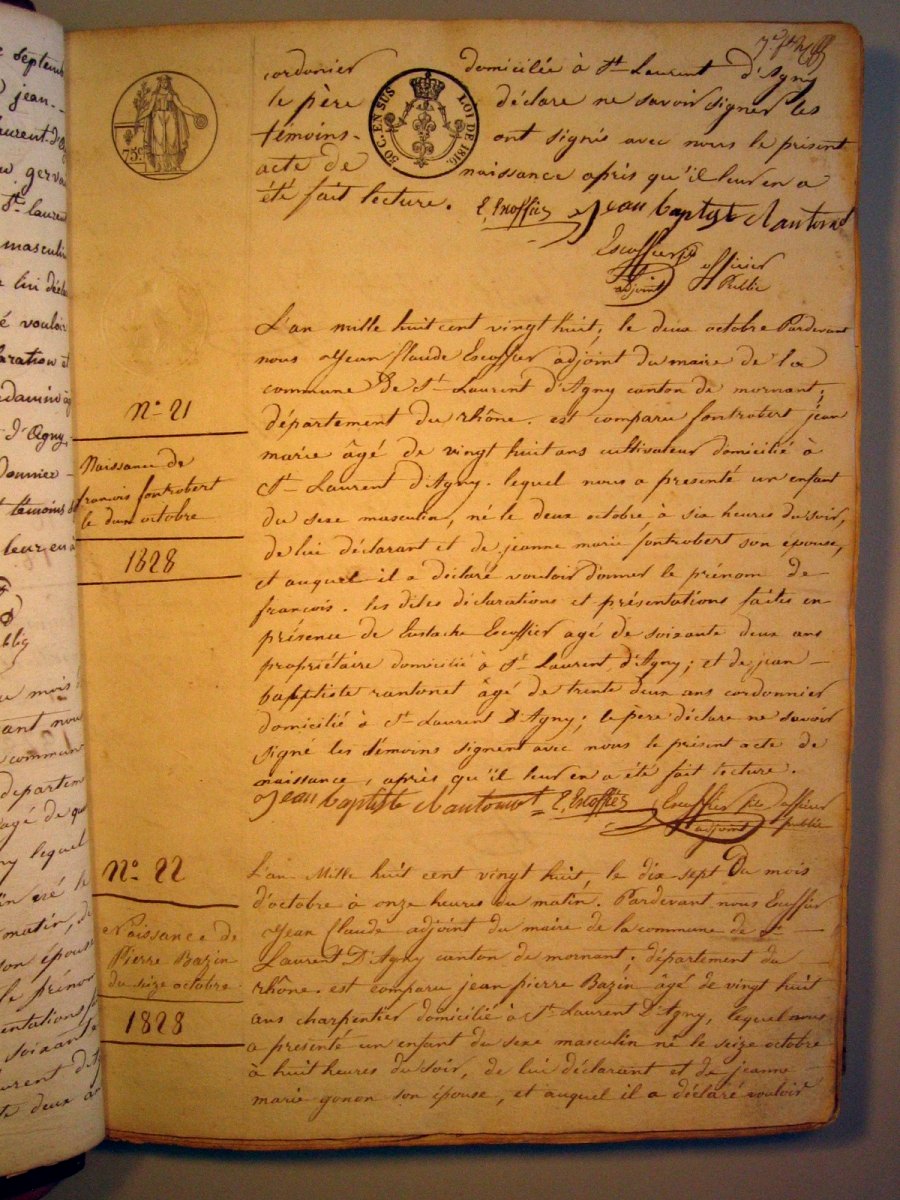 septemb
jean-
laurent d'
gerva
St laurent
masculin
lui décla
vouloir
laration et
d'Agny,
témoins
leur en a
mois
ant nou
commun
départem
agé de qua
lequel
né le
matin, de
son épous
le prénom
entations
soixante
deux a
75c.
50 C. EN SUS LOI DE 1816.
cordonier domicilée à St Laurent d'Agny
le père déclare ne savoir signer les
témoins- ont signés avec nous le présent
acte de naissance après qu'il leur en a
été fait lecture. E. Escoffier Jean baptiste Nantonnet
Escoffier
adjoint officier
Public
N° 21
Naissance de
francois fontrobert
le deux octobre
1828
L'an mille huit cent vingt huit, le deux octobre Pardevant
nous Jean Claude Escoffier adjoint du maire de la
commune De St Laurent d'Agny canton de mornant,
département du rhône. est comparu fontrobert jean
marie âgé de vingt huit ans cultivateur domicilié à
St Laurent d'Agny. lequel nous a presenté un enfant
du sexe masculin, né le deux octobre à six heures du soir,
de lui déclarant et de jeanne marie fontrobert son épouse,
et auquel il a déclaré vouloir donner le prénom de
francois. les dites déclarations et présentations faites en
présence de Eustache Escoffier agé de soixante deux ans
propriétaire domicilié à St Laurent d'Agny; et de jean-
baptiste nantonet âgé de trente deux ans cordonnier
domicilié à St Laurent D'Agny; le père déclare ne savoir
signé les témoins signent avec nous le présent acte de
naissance, après qu'il leur en a été fait lecture.
Jean baptiste Nantonnet E. Escoffier Escoffier officier
adjoint public
N° 22
Naissance de
Pierre Bazin
du seize octobre
1828
L'an Mille huit cent vingt huit, le dix sept Du mois
d'octobre à onze heures du matin. Pardevant nous Escoffier
Jean Claude adjoint du maire de la commune de St
Laurent D'Agny canton de mornant. département du
rhône. est comparu jean pierre Bazin âgé de vingt huit
ans charpentier domicilié à St Laurent D'Agny, lequel nous
a presenté un enfant du sexe masculin né le seize octobre
à huit heures du soir, de lui déclarant et de jeanne
marie gonon son épouse, et auquel il a déclaré vouloir